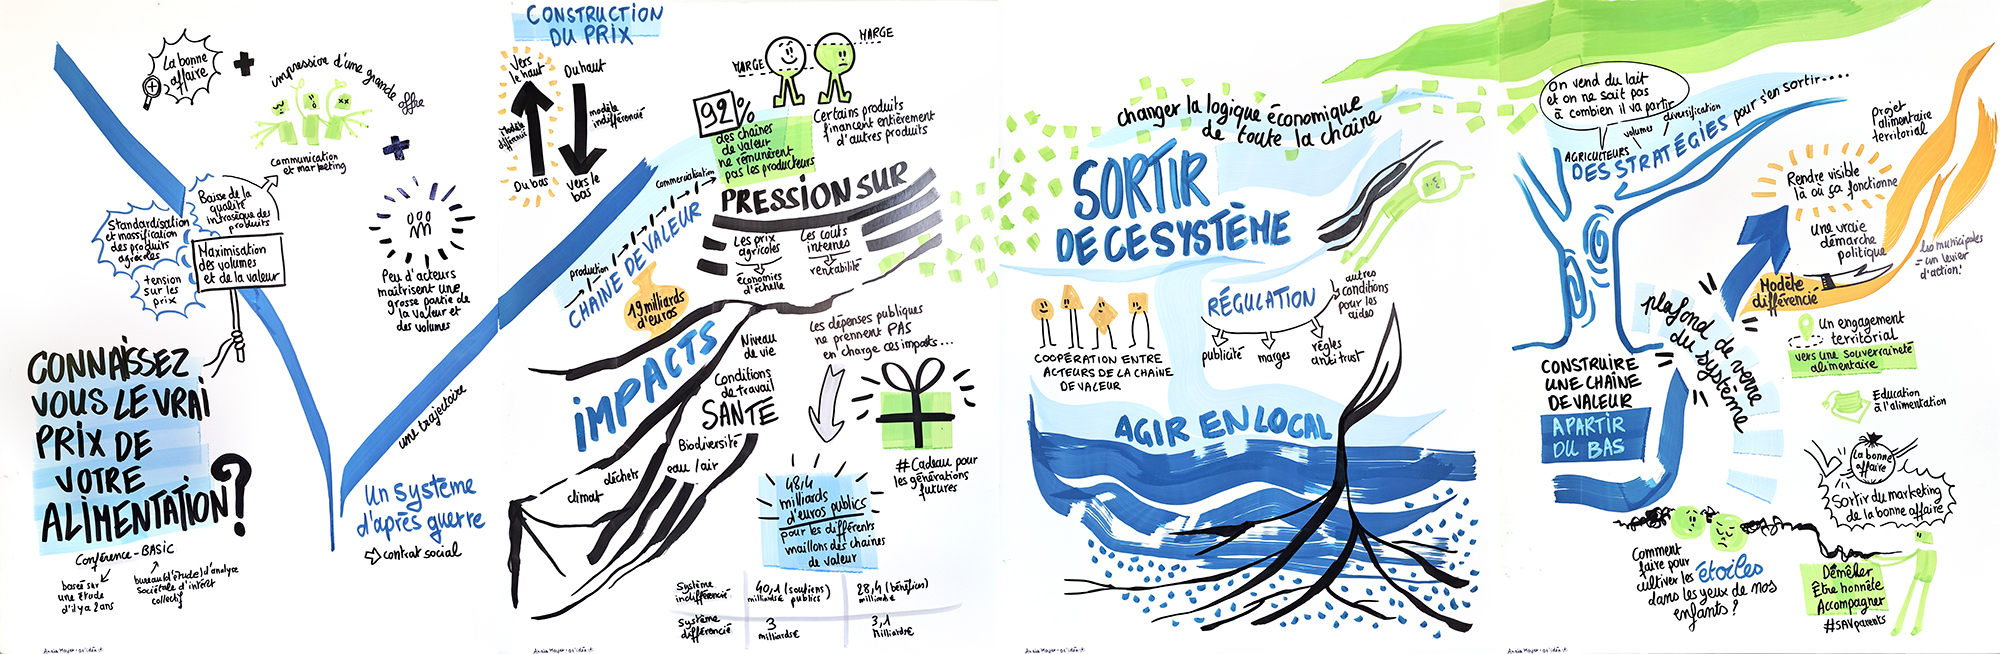 La bonne
affaire
impression d'une grande
offre
communication
et marketing
Baisse de la
qualité
intrinsèque des
produits
Standardisation
et massification
des produits
agricoles
tension
sur les
prix
Maximisation
des volumes
et de la valeur
Peu d'acteurs
maîtrisent une
grosse partie de
la valeur et
des volumes
CONNAISSEZ
VOUS LE VRAI
PRIX DE
VOTRE
ALIMENTATION?
Conférence - BASIC
basée sur
une étude
d'il y a 2 ans
bureau (d'étude) d'analyse
sociétale d'intérêt
collectif
une trajectoire
Un système
d'après guerre
contrat social
Annie Mayer - oz'idée
CONSTRUCTION
DU PRIX
Vers
le haut
Du haut
Modèle
différencié
modèle
indifférencié
Du bas
Vers le
bas
MARGE
MARGE
92%
des chaînes
de valeur
ne rémunèrent
pas les producteurs
Certains produits
financent entièrement
d'autres produits
CHAINE DE VALEUR
production
commercialisation
19 milliards
d'euros
PRESSION SUR
Les prix
agricoles
économies
d'échelle
Les coûts
internes
rentabilité
IMPACTS
Niveau
de vie
Conditions
de travail
SANTÉ
Biodiversité
eau / air
déchets
climat
Les dépenses publiques
ne prennent PAS
en charge ces impacts...
# Cadeau pour
les générations
futures
48,4
milliards
d'euros publics
pour les différents
maillons des chaînes
de valeur
Système
indifférencié
40,1 (soutiens)
milliards € publics
28,4 (bénéfices)
milliards €
Système
différencié
3
milliards €
3,1
milliards €
Annie Mayer - oz'idée
changer la logique économique
de toute la chaîne
SORTIR
DE CE SYSTÈME
COOPÉRATION ENTRE
ACTEURS DE LA CHAÎNE
DE VALEUR
RÉGULATION
publicité
marges
règles
antitrust
autres
conditions
pour les
aides
AGIR EN LOCAL
Annie Mayer - oz'idée
On vend du lait
et on ne sait pas
à combien il va partir
AGRICULTEURS
volumes
diversification
DES STRATÉGIES pour s'en sortir....
Projet
alimentaire
territorial
Rendre visible
là où ça fonctionne
une vraie
démarche
politique
Les municipales
= un levier
d'action!
Modèle
différencié
plafond de verre
du système
Un engagement
territorial
vers une souveraineté
alimentaire
Education
à l'alimentation
CONSTRUIRE
UNE CHAÎNE
DE VALEUR
A PARTIR
DU BAS
La bonne
affaire
Sortir du marketing
de la bonne affaire
Comment
faire pour
cultiver les étoiles
dans les yeux de nos
enfants?
Démêler
Être honnête
Accompagner
#SAVparents
Annie Mayer - oz'idée